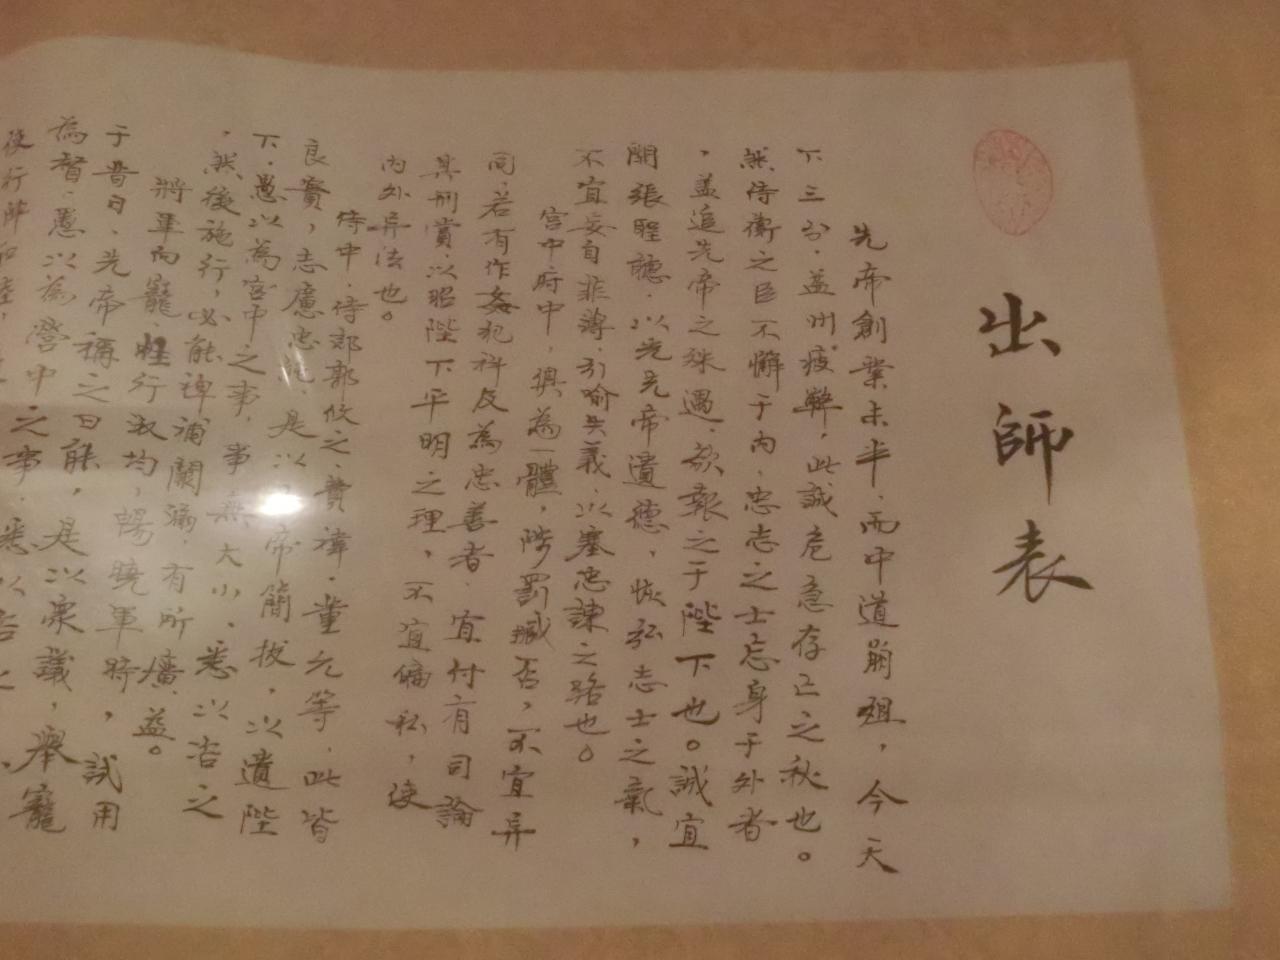 出師表
先帝創業未半、而中道崩殂，今天
下三分、益州疲弊，此誠危急存亡之秋也。
然侍衛之臣不懈于內、忠志之士忘身于外者
，蓋追先帝之殊遇、欲報之于陛下也。誠宜
開張聖聽、以光先帝遺德，恢弘志士之氣，
不宜妄自菲薄、引喻失義、以塞忠諫之路也。
宮中府中，俱為一體，陟罰臧否，不宜异
同、若有作姦犯科及為忠善者、宜付有司論
其刑賞、以昭陛下平明之理，不宜偏私，使
內外异法也。
侍中、侍郎郭攸之、費禕、董允等，此皆
良實，志慮忠純、是以先帝簡拔，以遺陛
下、愚以為宮中之事，事無大小、悉以咨之
，然後施行，必能裨補闕漏，有所廣益。
將軍向寵，性行淑均，暢曉軍時，試用
于昔日、先帝稱之曰能，是以眾議，舉寵
為督、愚以為營中之事、悉以咨之、
使行陣和